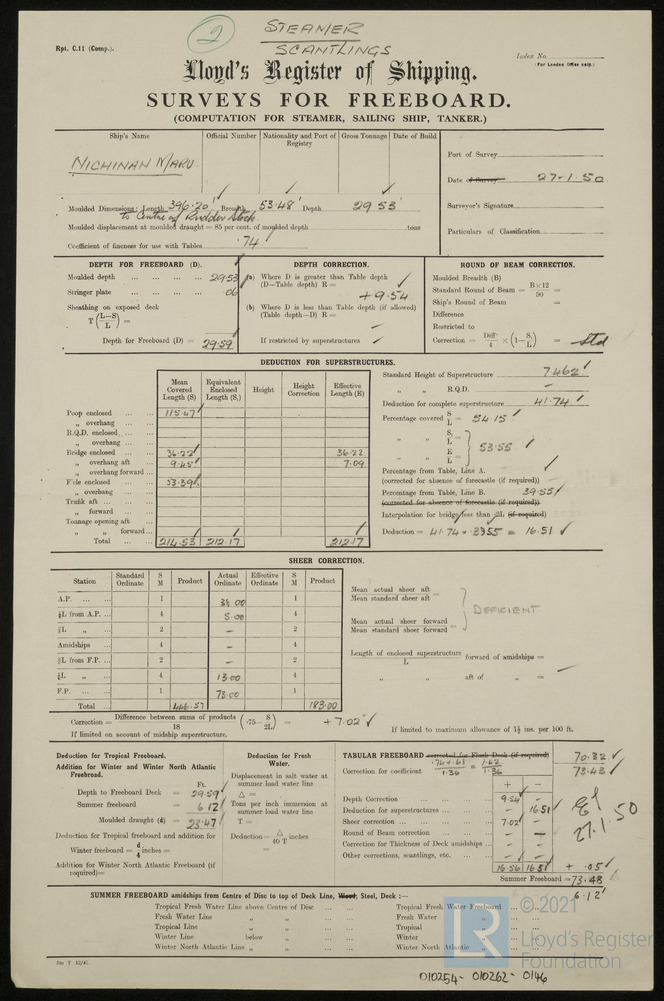 2
STEAMER
SCANTLINGS
Rpt. C.11 (Comp.).
Index No.
(For London Office only.)
Lloyd's Register of Shipping.
SURVEYS FOR FREEBOARD.
(COMPUTATION FOR STEAMER, SAILING SHIP, TANKER.)
Ship's Name
Official Number
Nationality and Port of Registry
Gross Tonnage
Date of Build
NICHINAN MARU
Port of Survey
Date of Survey 27-1.50
Surveyor's Signature
Particulars of Classification
Moulded Dimensions: Length 396.20' Breadth 53.48' Depth 29.53'
to Centre of Rudder Stock
Moulded displacement at moulded draught = 85 per cent. of moulded depth tons
Coefficient of fineness for use with Tables .74
DEPTH FOR FREEBOARD (D).
Moulded depth ... 29.53
Stringer plate ... .06
Sheathing on exposed deck
T (L—S / L) =
Depth for Freeboard (D) = 29.59
DEPTH CORRECTION.
(a) Where D is greater than Table depth
(D—Table depth) R =
+9.54
(b) Where D is less than Table depth (if allowed)
(Table depth—D) R =
If restricted by superstructures
ROUND OF BEAM CORRECTION.
Moulded Breadth (B)
Standard Round of Beam = B×12 / 50 =
Ship's Round of Beam =
Difference
Restricted to
Correction = Diff. / 4 × (1— S₁ / L) = Std
DEDUCTION FOR SUPERSTRUCTURES.
Mean Covered Length (S)
Equivalent Enclosed Length (S₁)
Height
Height Correction
Effective Length (E)
Poop enclosed ... 115.47
„ overhang ...
R.Q.D. enclosed ...
„ overhang ...
Bridge enclosed ... 36.22 36.22
„ overhang aft ... 9.45 7.09
„ overhang forward ...
F'cle enclosed ... 53.39
„ overhang ...
Trunk aft ...
„ forward ...
Tonnage opening aft
„ „ forward ...
Total ... 214.53 212.17 212.17
Standard Height of Superstructure 7.462
„ „ R.Q.D. -
Deduction for complete superstructure 41.74
Percentage covered S / L = 54.15
„ „ S₁ / L =
„ „ E / L = 53.55
Percentage from Table, Line A.
(corrected for absence of forecastle (if required))
Percentage from Table, Line B. 39.55
(corrected for absence of forecastle (if required))
Interpolation for bridge less than .2L (if required)
Deduction = 41.74 × .3955 = 16.51
SHEER CORRECTION.
Station
Standard Ordinate
S M
Product
Actual Ordinate
Effective Ordinate
S M
Product
A.P. ... 1 1
⅙L from A.P. ... 4 5.00 4
⅓L „ ... 2 - 2
Amidships ... 4 - 4
⅓L from F.P. ... 2 - 2
⅙L „ ... 4 13.00 4
F.P. ... 1 73.00 1
Total ... 446.57 183.00
Mean actual sheer aft
Mean standard sheer aft =
Mean actual sheer forward
Mean standard sheer forward =
DEFICIENT
Length of enclosed superstructure / L forward of amidships =
„ „ aft of „ =
Correction = Difference between sums of products / 18 (.75— S / 2L) = +7.02
If limited on account of midship superstructure.
If limited to maximum allowance of 1½ ins. per 100 ft.
Deduction for Tropical Freeboard.
Addition for Winter and Winter North Atlantic Freeboard.
Ft.
Depth to Freeboard Deck = 29.59
Summer freeboard = 6.12
Moulded draught (d) = 23.47
Deduction for Tropical freeboard and addition for
Winter freeboard = d / 4 inches =
Addition for Winter North Atlantic Freeboard (if required)=
Deduction for Fresh Water.
Displacement in salt water at summer load water line
Δ =
Tons per inch immersion at summer load water line
T =
Deduction= Δ / 40 T inches
=
TABULAR FREEBOARD corrected for Flush Deck (if required) 70.32
Correction for coefficient .74+.68 / 1.36 = 1.42 / 1.36 73.43
+ -
Depth Correction ... 9.54 -
Deduction for superstructures ... - 16.51
Sheer correction ... 7.02 -
Round of Beam correction ... - -
Correction for Thickness of Deck amidships ... - -
Other corrections, scantlings, etc. ... - -
16.56 16.51 + .05
Summer Freeboard = 73.48
6.12'
27.1.50
SUMMER FREEBOARD amidships from Centre of Disc to top of Deck Line, Wood, Steel, Deck :—
Tropical Fresh Water Line above Centre of Disc ...
Fresh Water Line „ „ ...
Tropical Line „ „ ...
Winter Line below „ ...
Winter North Atlantic Line „ „ ...
Tropical Fresh Water Freeboard ...
Fresh Water „ ...
Tropical „ ...
Winter „ ...
Winter North Atlantic „ ...
© 2021
LR
Lloyd's Register
Foundation
010254-010262-0146